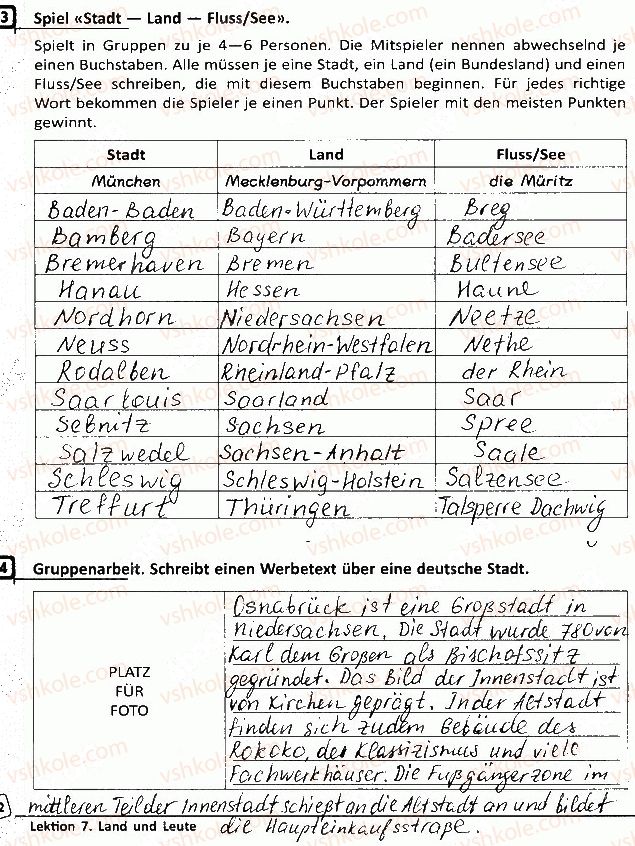 3 Spiel «Stadt — Land — Fluss/See».
Spielt in Gruppen zu je 4—6 Personen. Die Mitspieler nennen abwechselnd je
einen Buchstaben. Alle müssen je eine Stadt, ein Land (ein Bundesland) und einen
Fluss/See schreiben, die mit diesem Buchstaben beginnen. Für jedes richtige
Wort bekommen die Spieler je einen Punkt. Der Spieler mit den meisten Punkten
gewinnt.
Stadt Land Fluss/See
München Mecklenburg-Vorpommern die Müritz
Baden-Baden Baden-Württemberg Breg
Bamberg Bayern Badersee
Bremerhaven Bremen Bultensee
Hanau Hessen Haune
Nordhorn Niedersachsen Neetze
Neuss Nordrhein-Westfalen Nethe
Rodalben Rheinland-Pfalz der Rhein
Saarlouis Saarland Saar
Sebnitz Sachsen Spree
Salzwedel Sachsen-Anhalt Saale
Schleswig Schleswig-Holstein Salzensee
Treffurt Thüringen Talsperre Dachwig
4 Gruppenarbeit. Schreibt einen Werbetext über eine deutsche Stadt.
PLATZ
FÜR
FOTO
Osnabrück ist eine Großstadt in
Niedersachsen. Die Stadt wurde 780 von
Karl dem Großen als Bischofssitz
gegründet. Das Bild der Innenstadt ist
von Kirchen geprägt. In der Altstadt
finden sich zudem Gebäude des
Rokoko, des Klassizismus und viele
Fachwerkhäuser. Die Fußgängerzone im
mittleren Teil der Innenstadt schießt an die Altstadt an und bildet
die Haupteinkaufsstraße.
2 Lektion 7. Land und Leute
vshkole.com